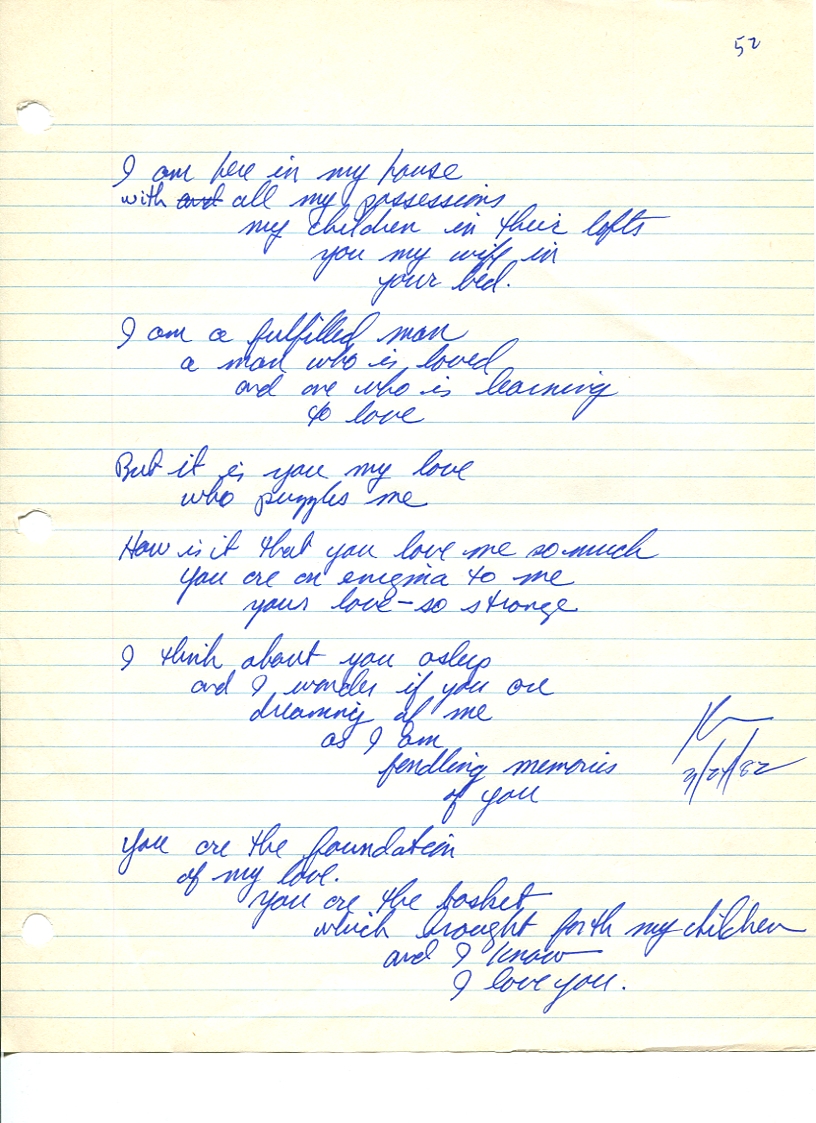 52
I am here in my house
with and all my possessions
my children in their lofts
you my wife in
your bed.
I am a fulfilled man
a man who is loved
and one who is learning
to love
But it is you my love
who puzzles me
How is it that you love me so much
you are an enigma to me
your love - so strange
I think about you asleep
and I wonder if you are
dreaming of me
as I am
fondling memories
of you
You are the foundation
of my love.
You are the basket
which brought forth my children
and I know
I love you.